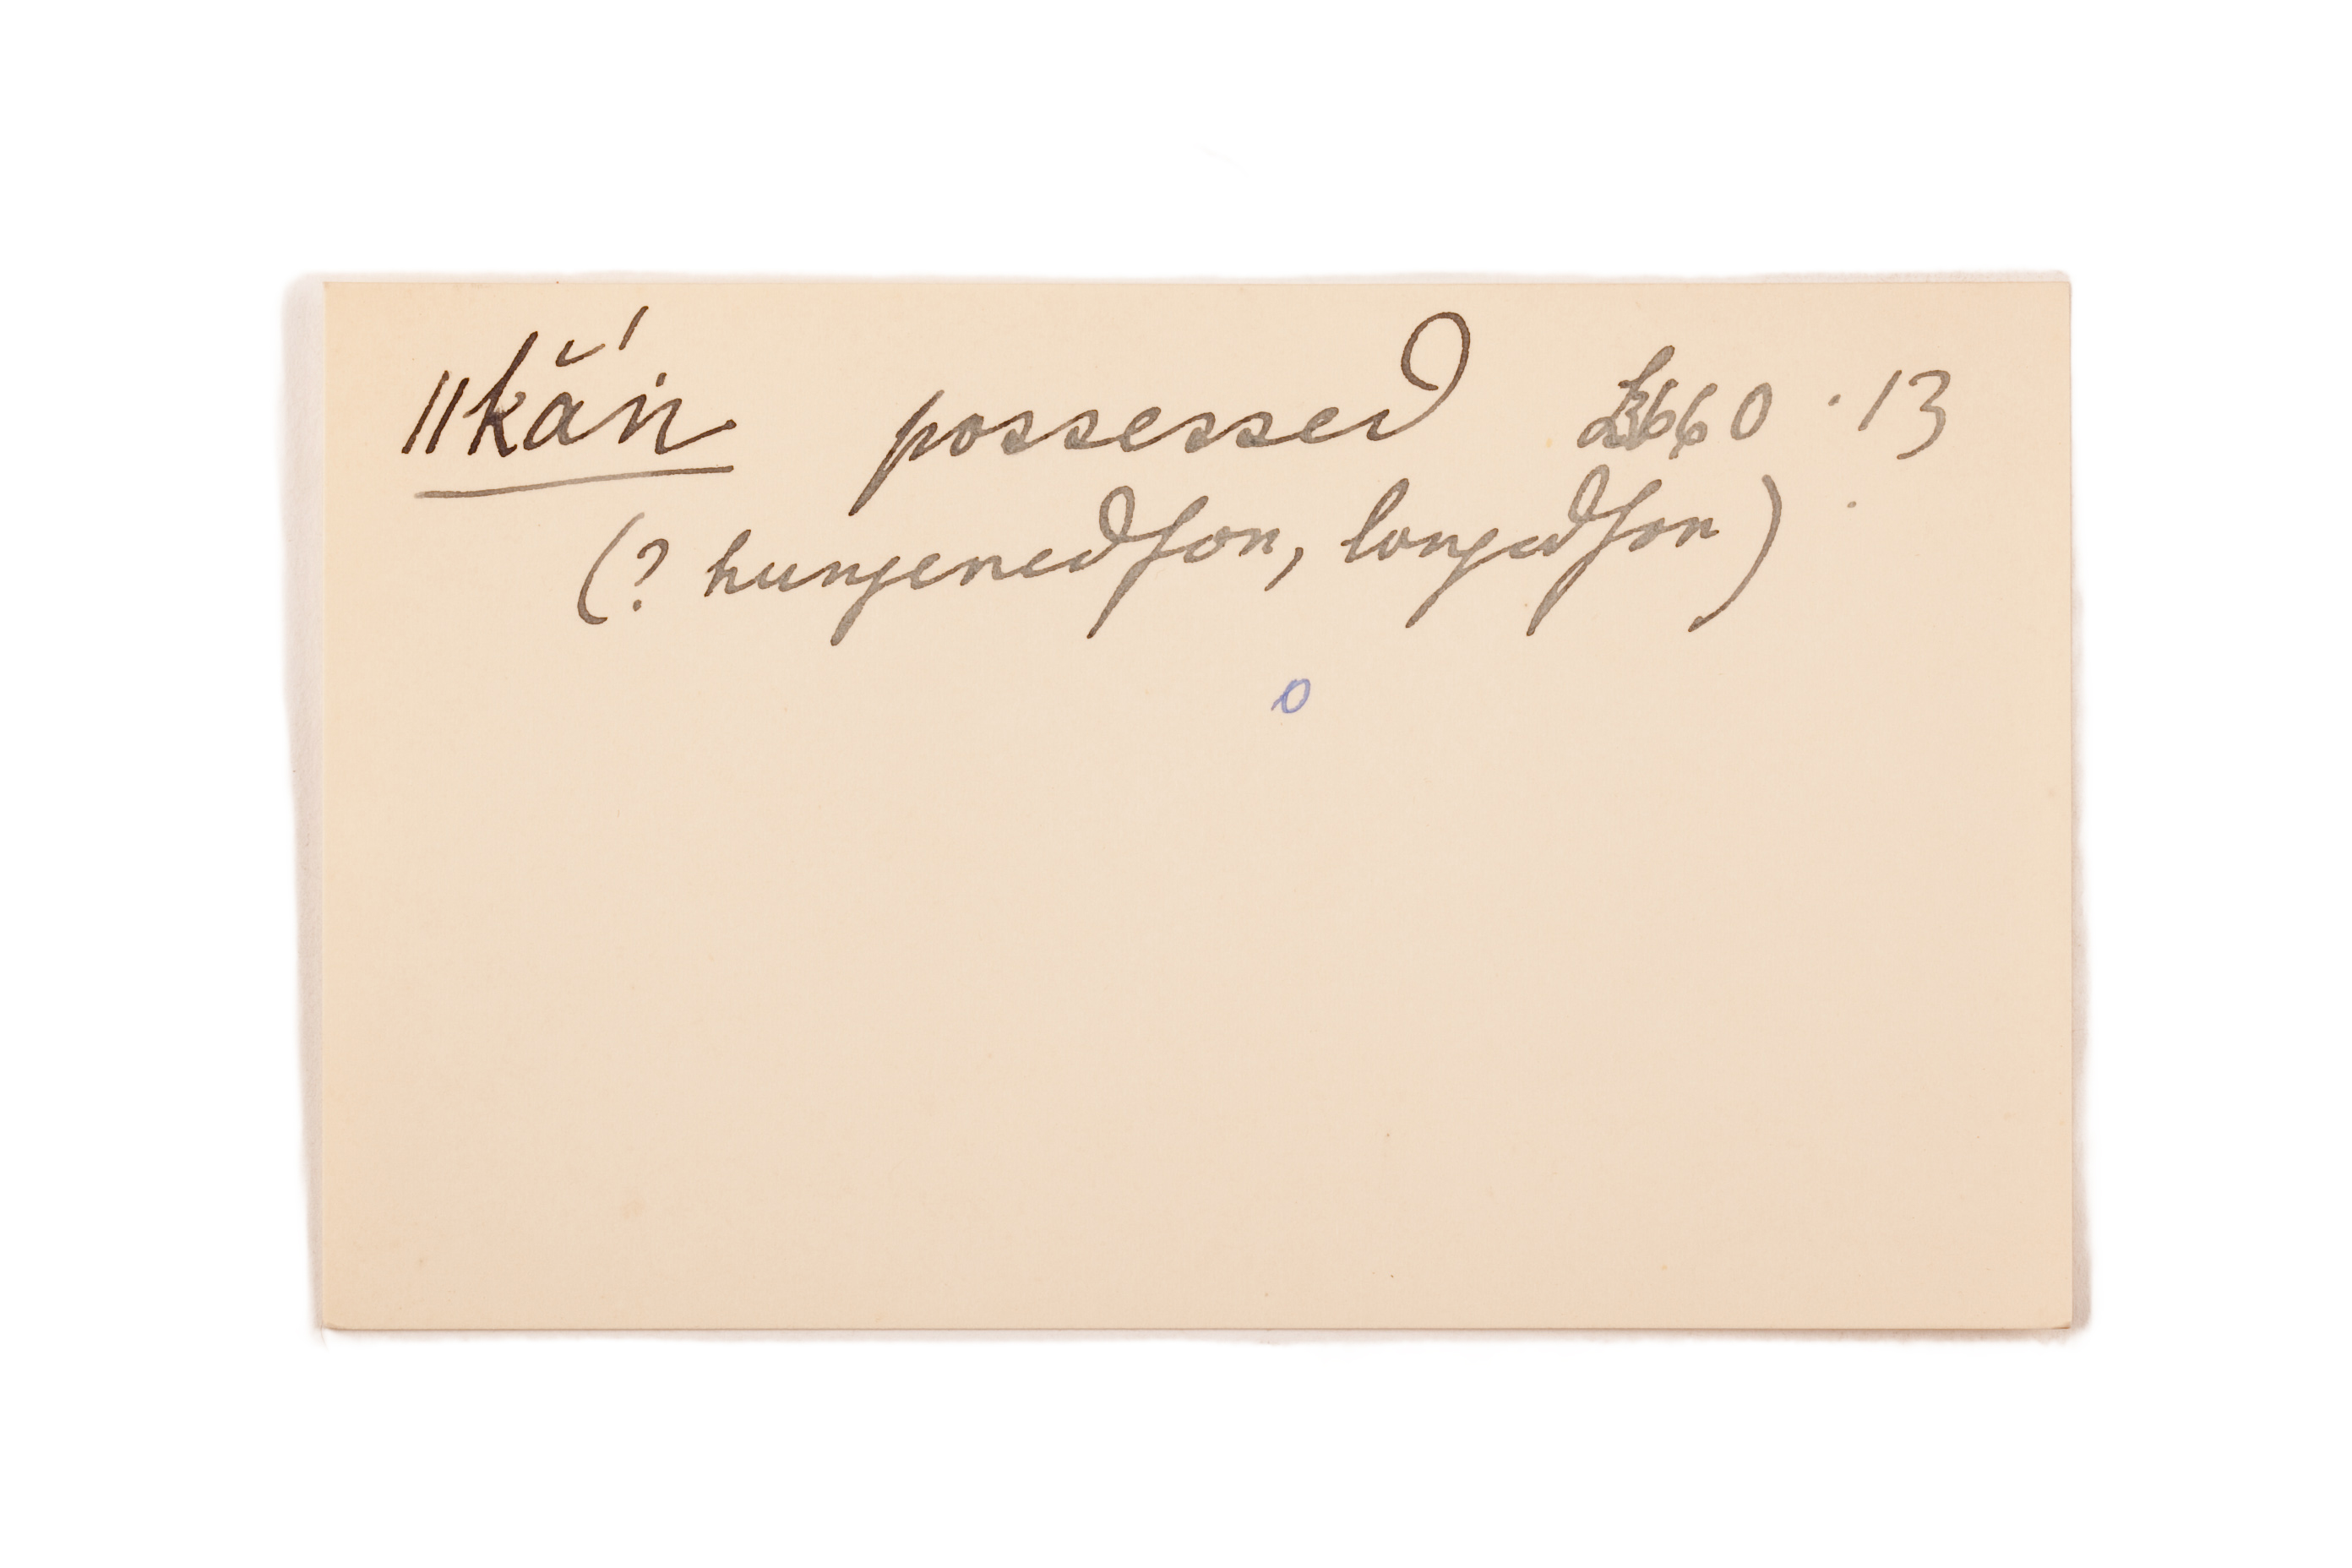 ǁkă'n possessed L660 · 13
(? hungered for, longed for)
o